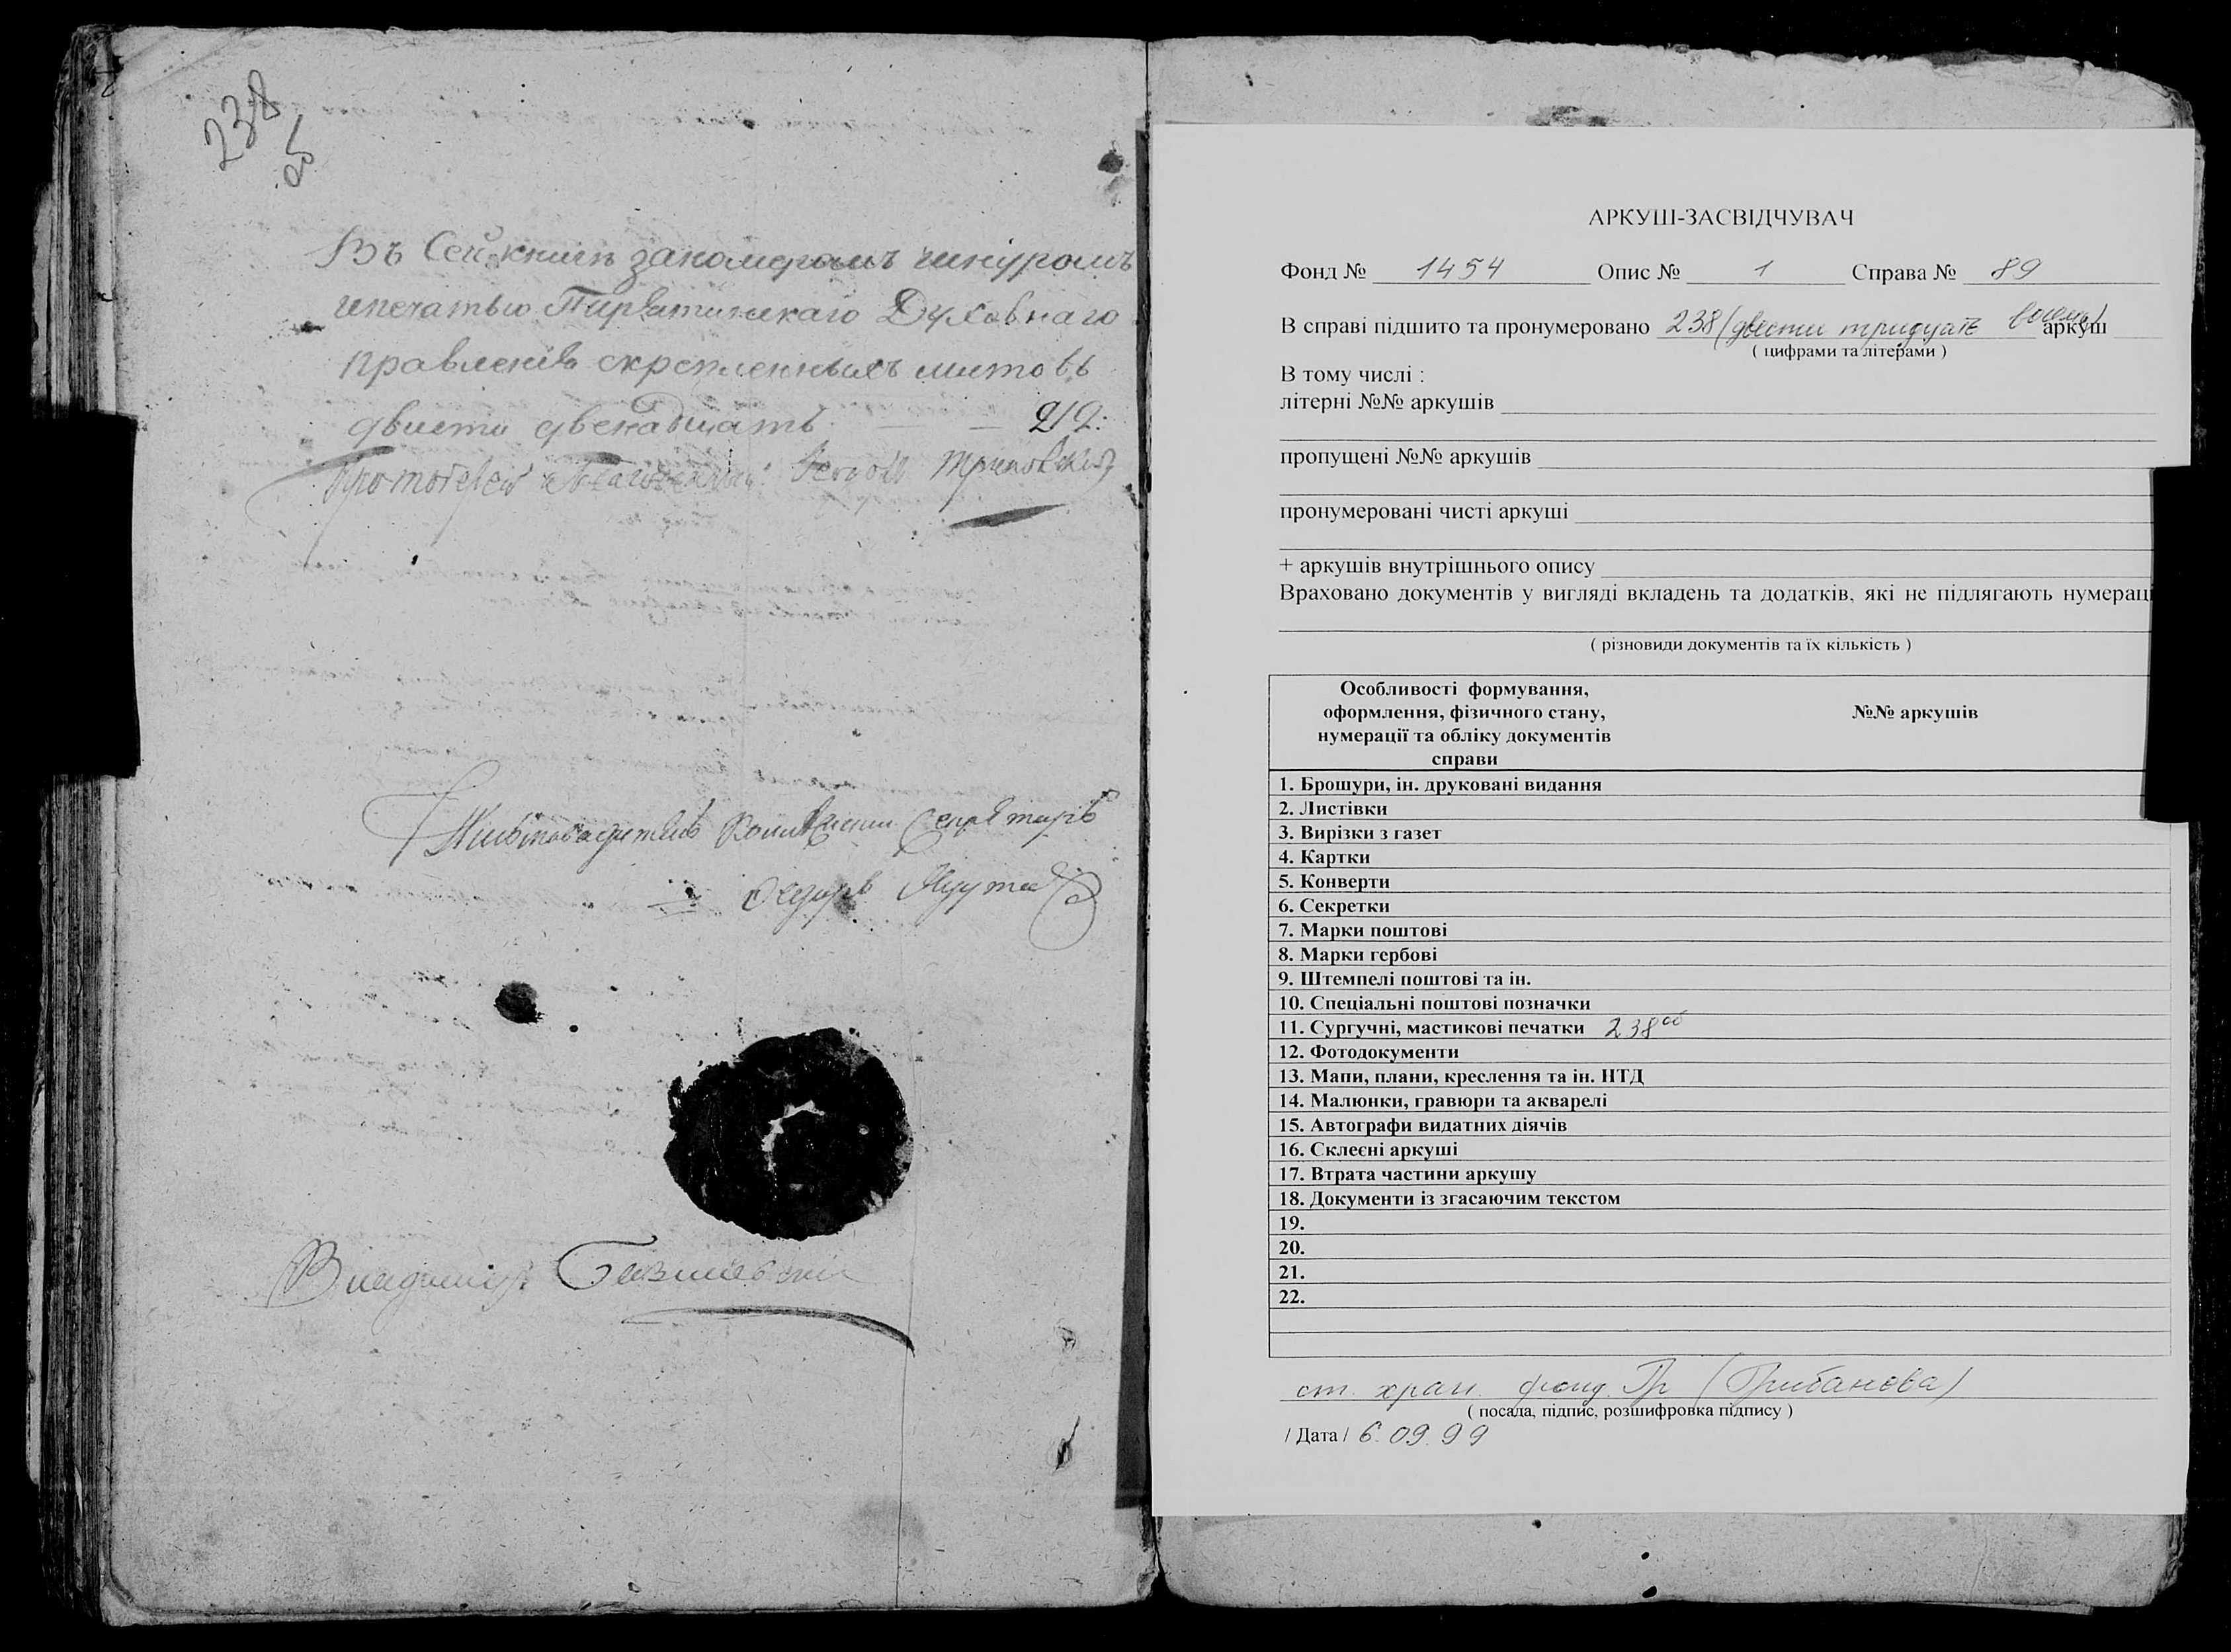 238
об
Въ Сей книгѣ закомерамъ шнуромъ
ипечатью Пирятинскаго Духовнаго
правленія скрепленныхъ листовъ
двисти двенадцать — 212:
Протоиерей
Секретарь
Федоръ
Владимиръ
АРКУШ-ЗАСВІДЧУВАЧ
Фонд № 1454 Опис № 1 Справа № 89
В справі підшито та пронумеровано 238 (двести тридцать восемь) аркуш
( цифрами та літерами )
В тому числі :
літерні №№ аркушів
пропущені №№ аркушів
пронумеровані чисті аркуші
+ аркушів внутрішнього опису
Враховано документів у вигляді вкладень та додатків, які не підлягають нумераці
( різновиди документів та їх кількість )
Особливості формування,
оформлення, фізичного стану,
нумерації та обліку документів
справи
№№ аркушів
1. Брошури, ін. друковані видання
2. Листівки
3. Вирізки з газет
4. Картки
5. Конверти
6. Секретки
7. Марки поштові
8. Марки гербові
9. Штемпелі поштові та ін.
10. Спеціальні поштові позначки
11. Сургучні, мастикові печатки 238об
12. Фотодокументи
13. Мапи, плани, креслення та ін. НТД
14. Малюнки, гравюри та акварелі
15. Автографи видатних діячів
16. Склеєні аркуші
17. Втрата частини аркушу
18. Документи із згасаючим текстом
19.
20.
21.
22.
ст. хран. фонд. Гр (Грибанова)
( посада, підпис, розшифровка підпису )
/ Дата / 6.09.99